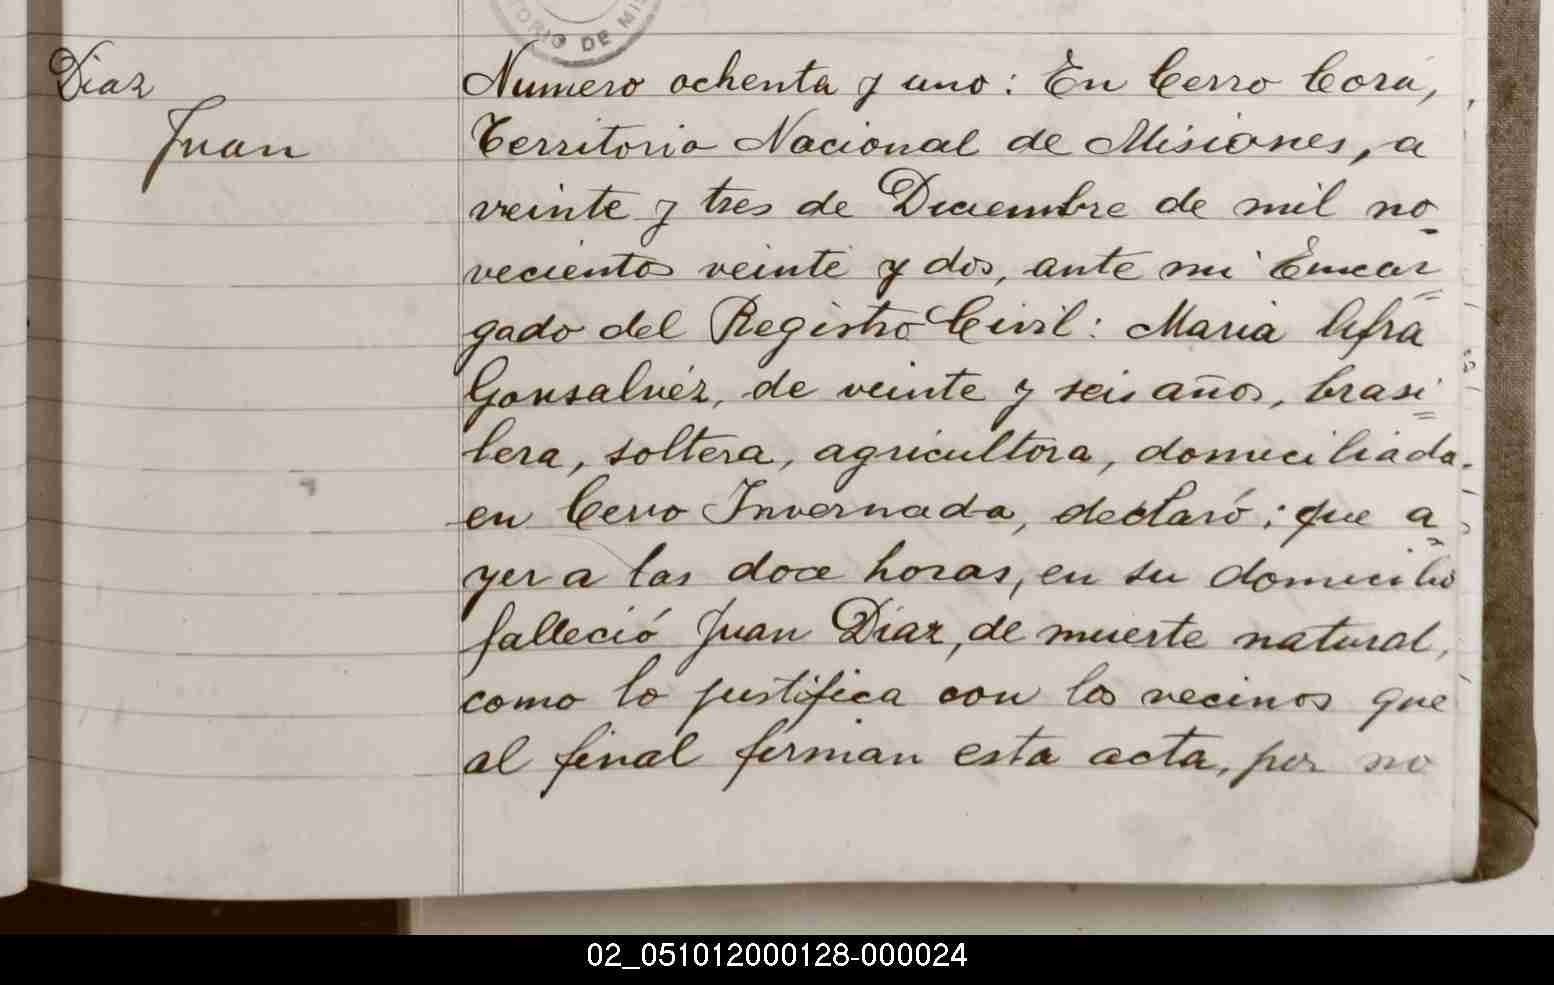 TORIO DE MIS
Diaz
Juan
Numero ochenta y uno: En Cerro Corá,
Territorio Nacional de Misiones, a
veinte y tres de Diciembre de mil no-
vecientos veinte y dos, ante mi Encar=
gado del Registro Civil: Maria Afra
Gonsalvéz, de veinte y seis años, brasi=
lera, soltera, agricultora, domiciliada
en Cerro Invernada, declaró; que a=
yer a las doce horas, en su domicilio
falleció Juan Diaz, de muerte natural,
como lo justifica con los vecinos que
al final firman esta acta, por no
02_051012000128-000024